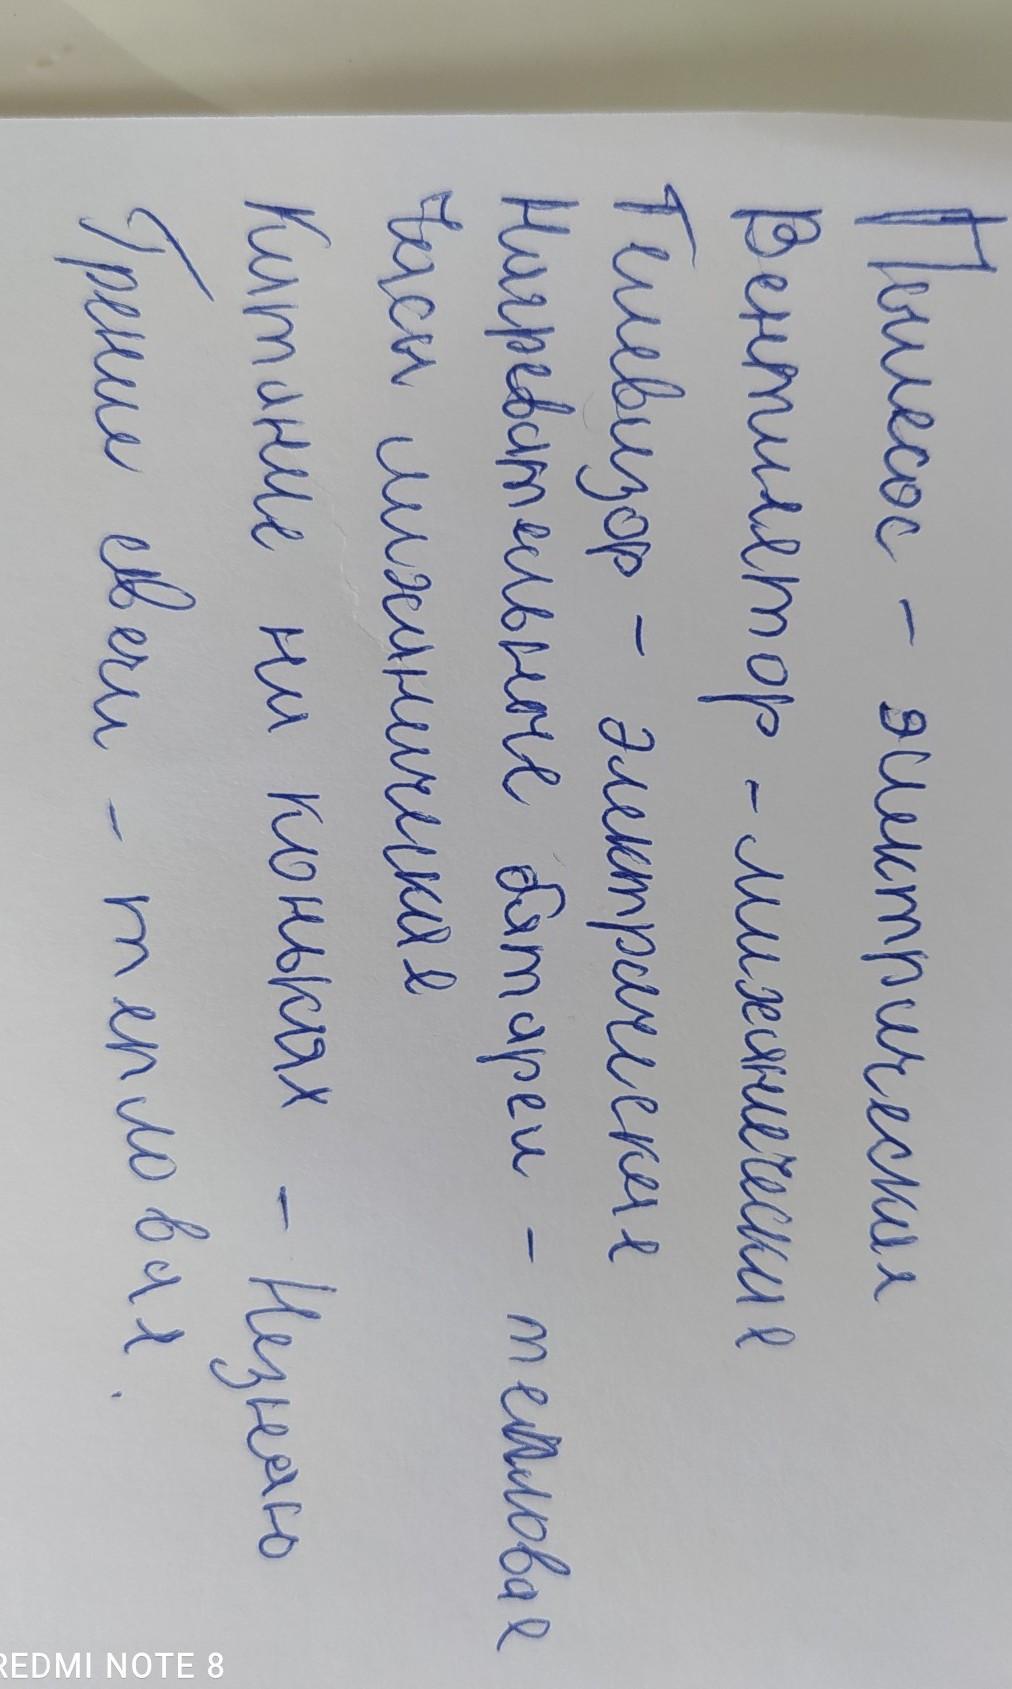 Пылесос - эслектрическия
Вентилятор - миханическия
Телевизор - электрическая
Нагревательные батареи - тепловая
Часы миханическая
Катание на коньках - Незнаю
Трение свечи - тепловая.
REDMI NOTE 8